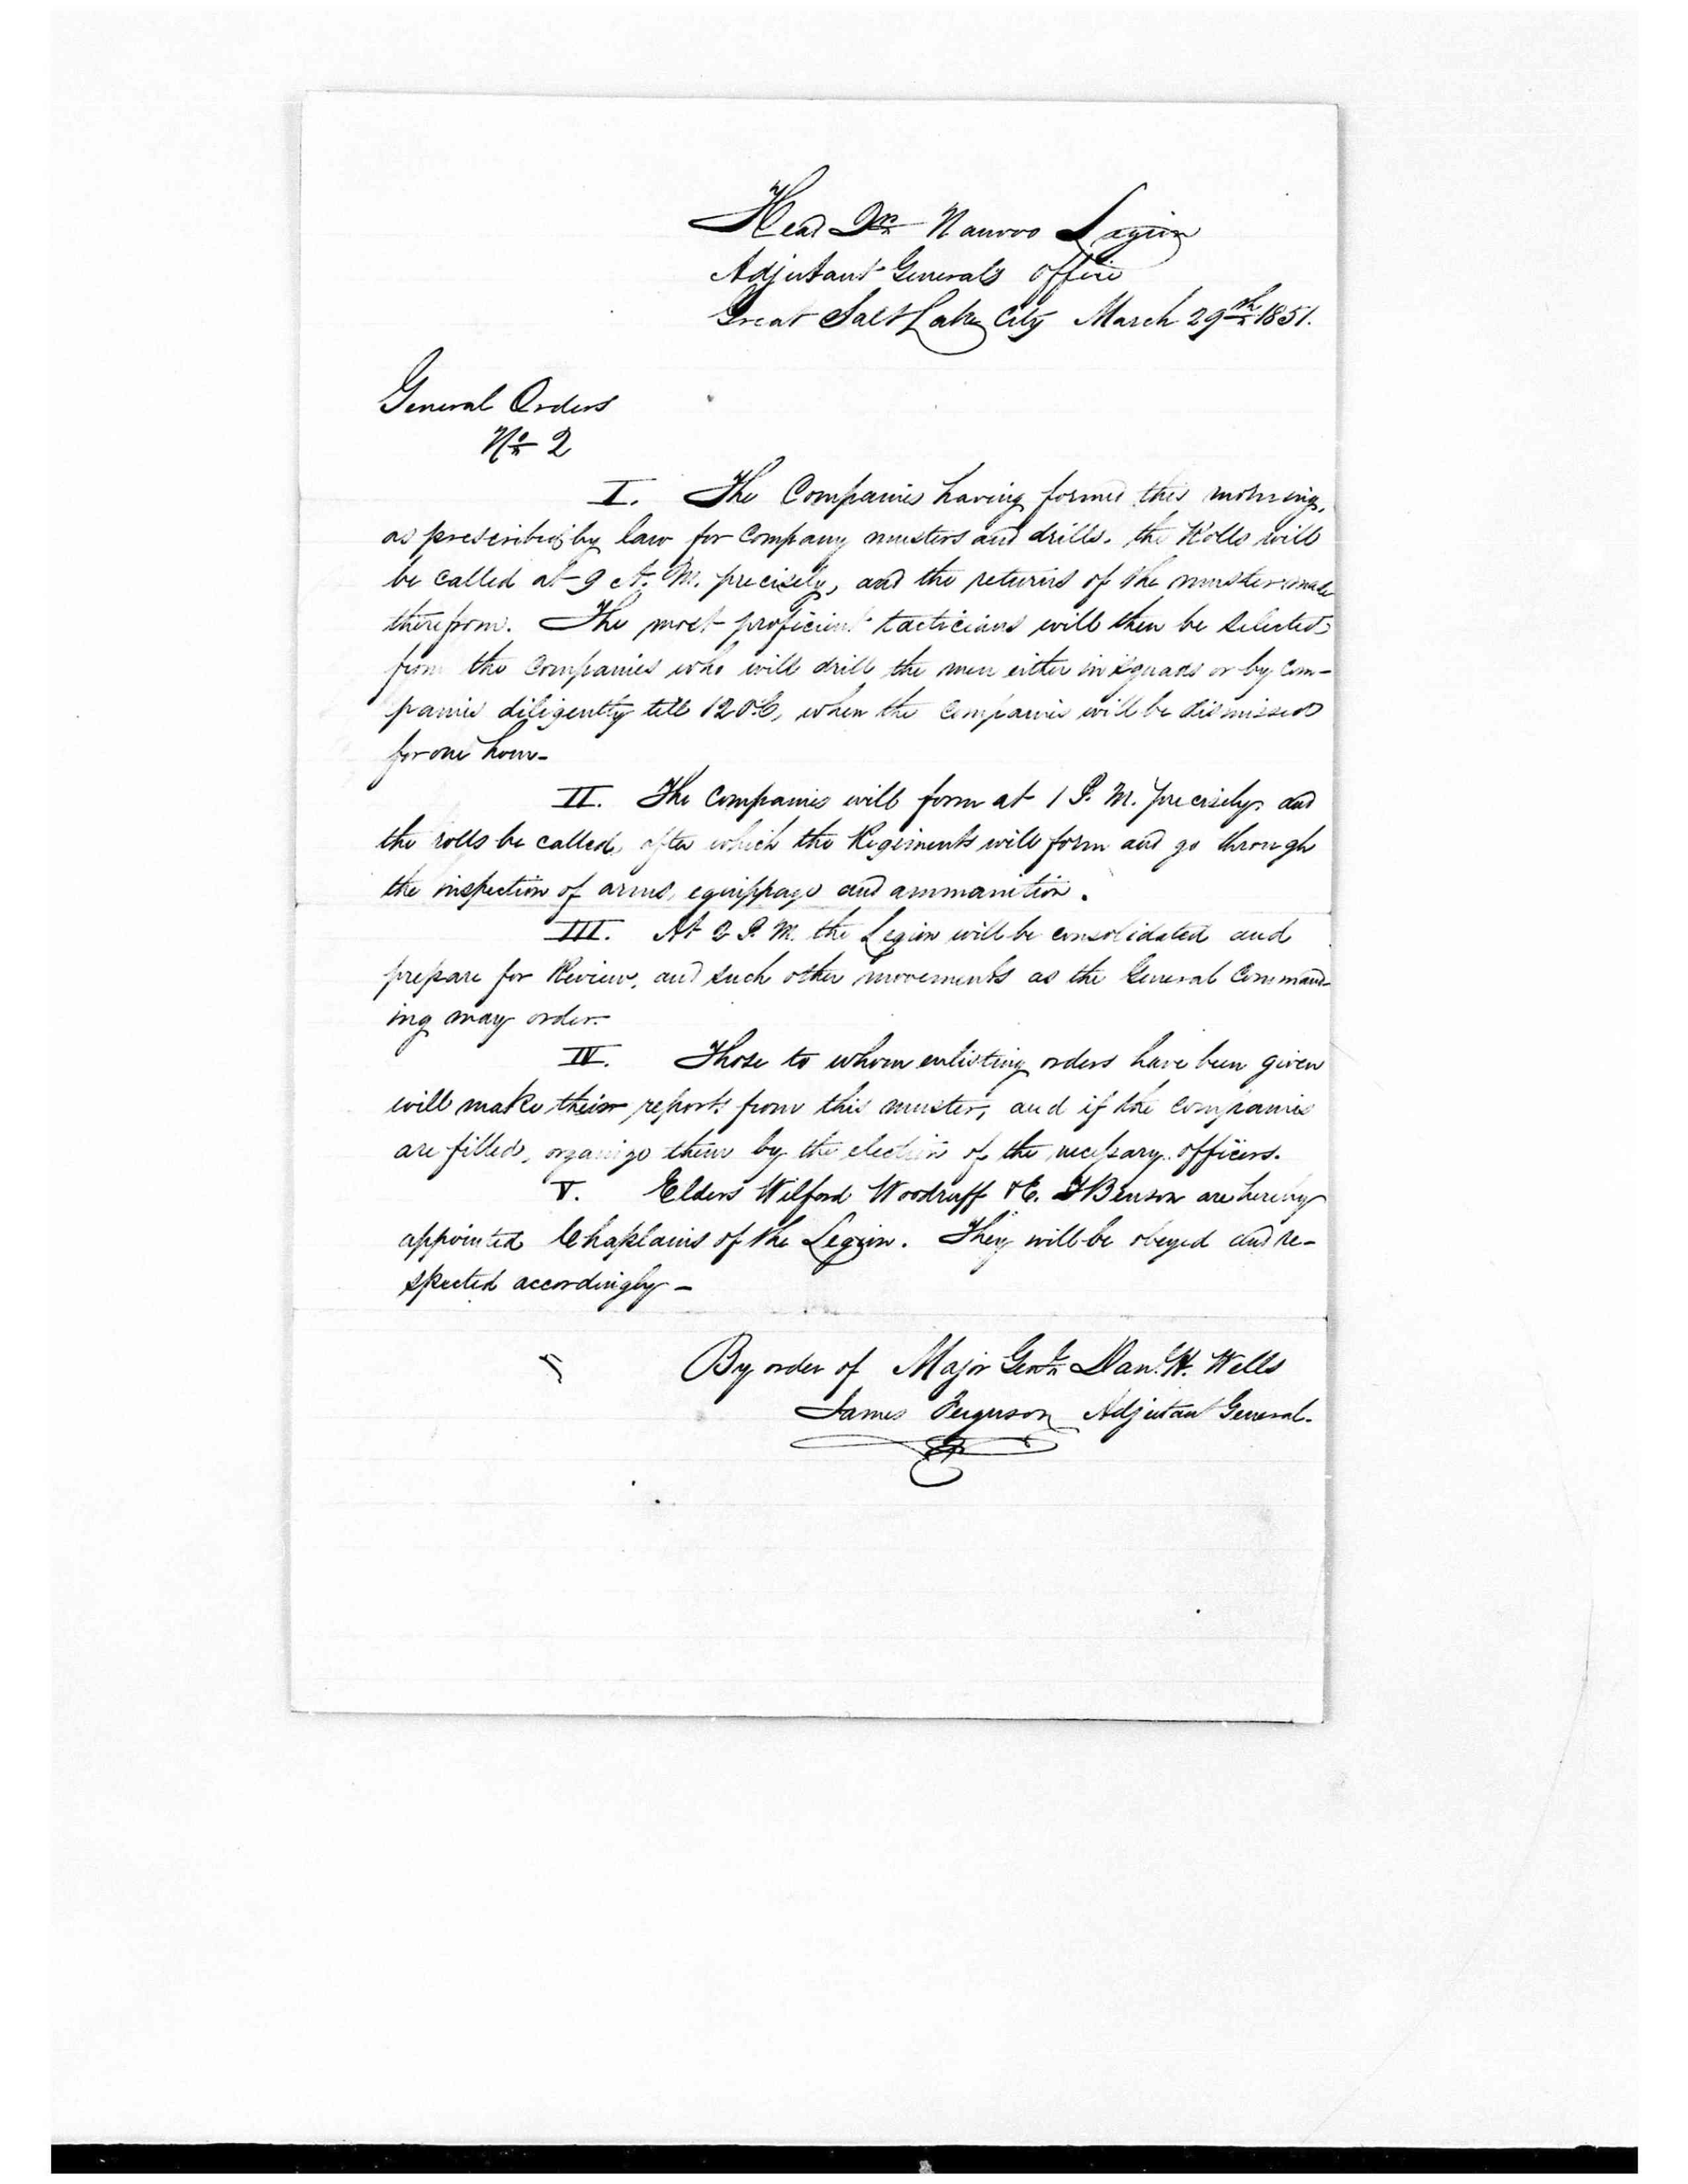 Head Qrs Nauvoo Legion
Adjutant Generals Office
Great Salt Lake City March 29th 1851.
General Orders
No 2
I. The Companies having formed this morning,
as prescribed by law for Company musters and drills. the Rolls will
be called at 9 A. M. precisely, and the returns of the muster made
therefrom. The most proficient tacticians will then be selected
from the Companies who will drill the men either in squads or by Com-
panies diligently till 12 o.C, when the Companies will be dismissed
for one hour-
II. The Companies will form at 1 P. M. precisely, and
the rolls be called, after which the Regiments will form and go through
the inspection of arms, equippage and ammanition.
III. At 2 P. M. the Legion will be consolidated and
prepare for Review, and such other movements as the General Command-
ing may order.
IV. Those to whom enlisting orders have been given
will make their reports from this muster, and if the companies
are filled, organize them by the election of the necessary officers.
V. Elders Wilford Woodruff & E. T Benson are hereby
appointed Chaplains of the Legion. They will be obeyed and re-
spected accordingly-
By order of Major Genl. Danl. H. Wells
James Ferguson Adjutant General.